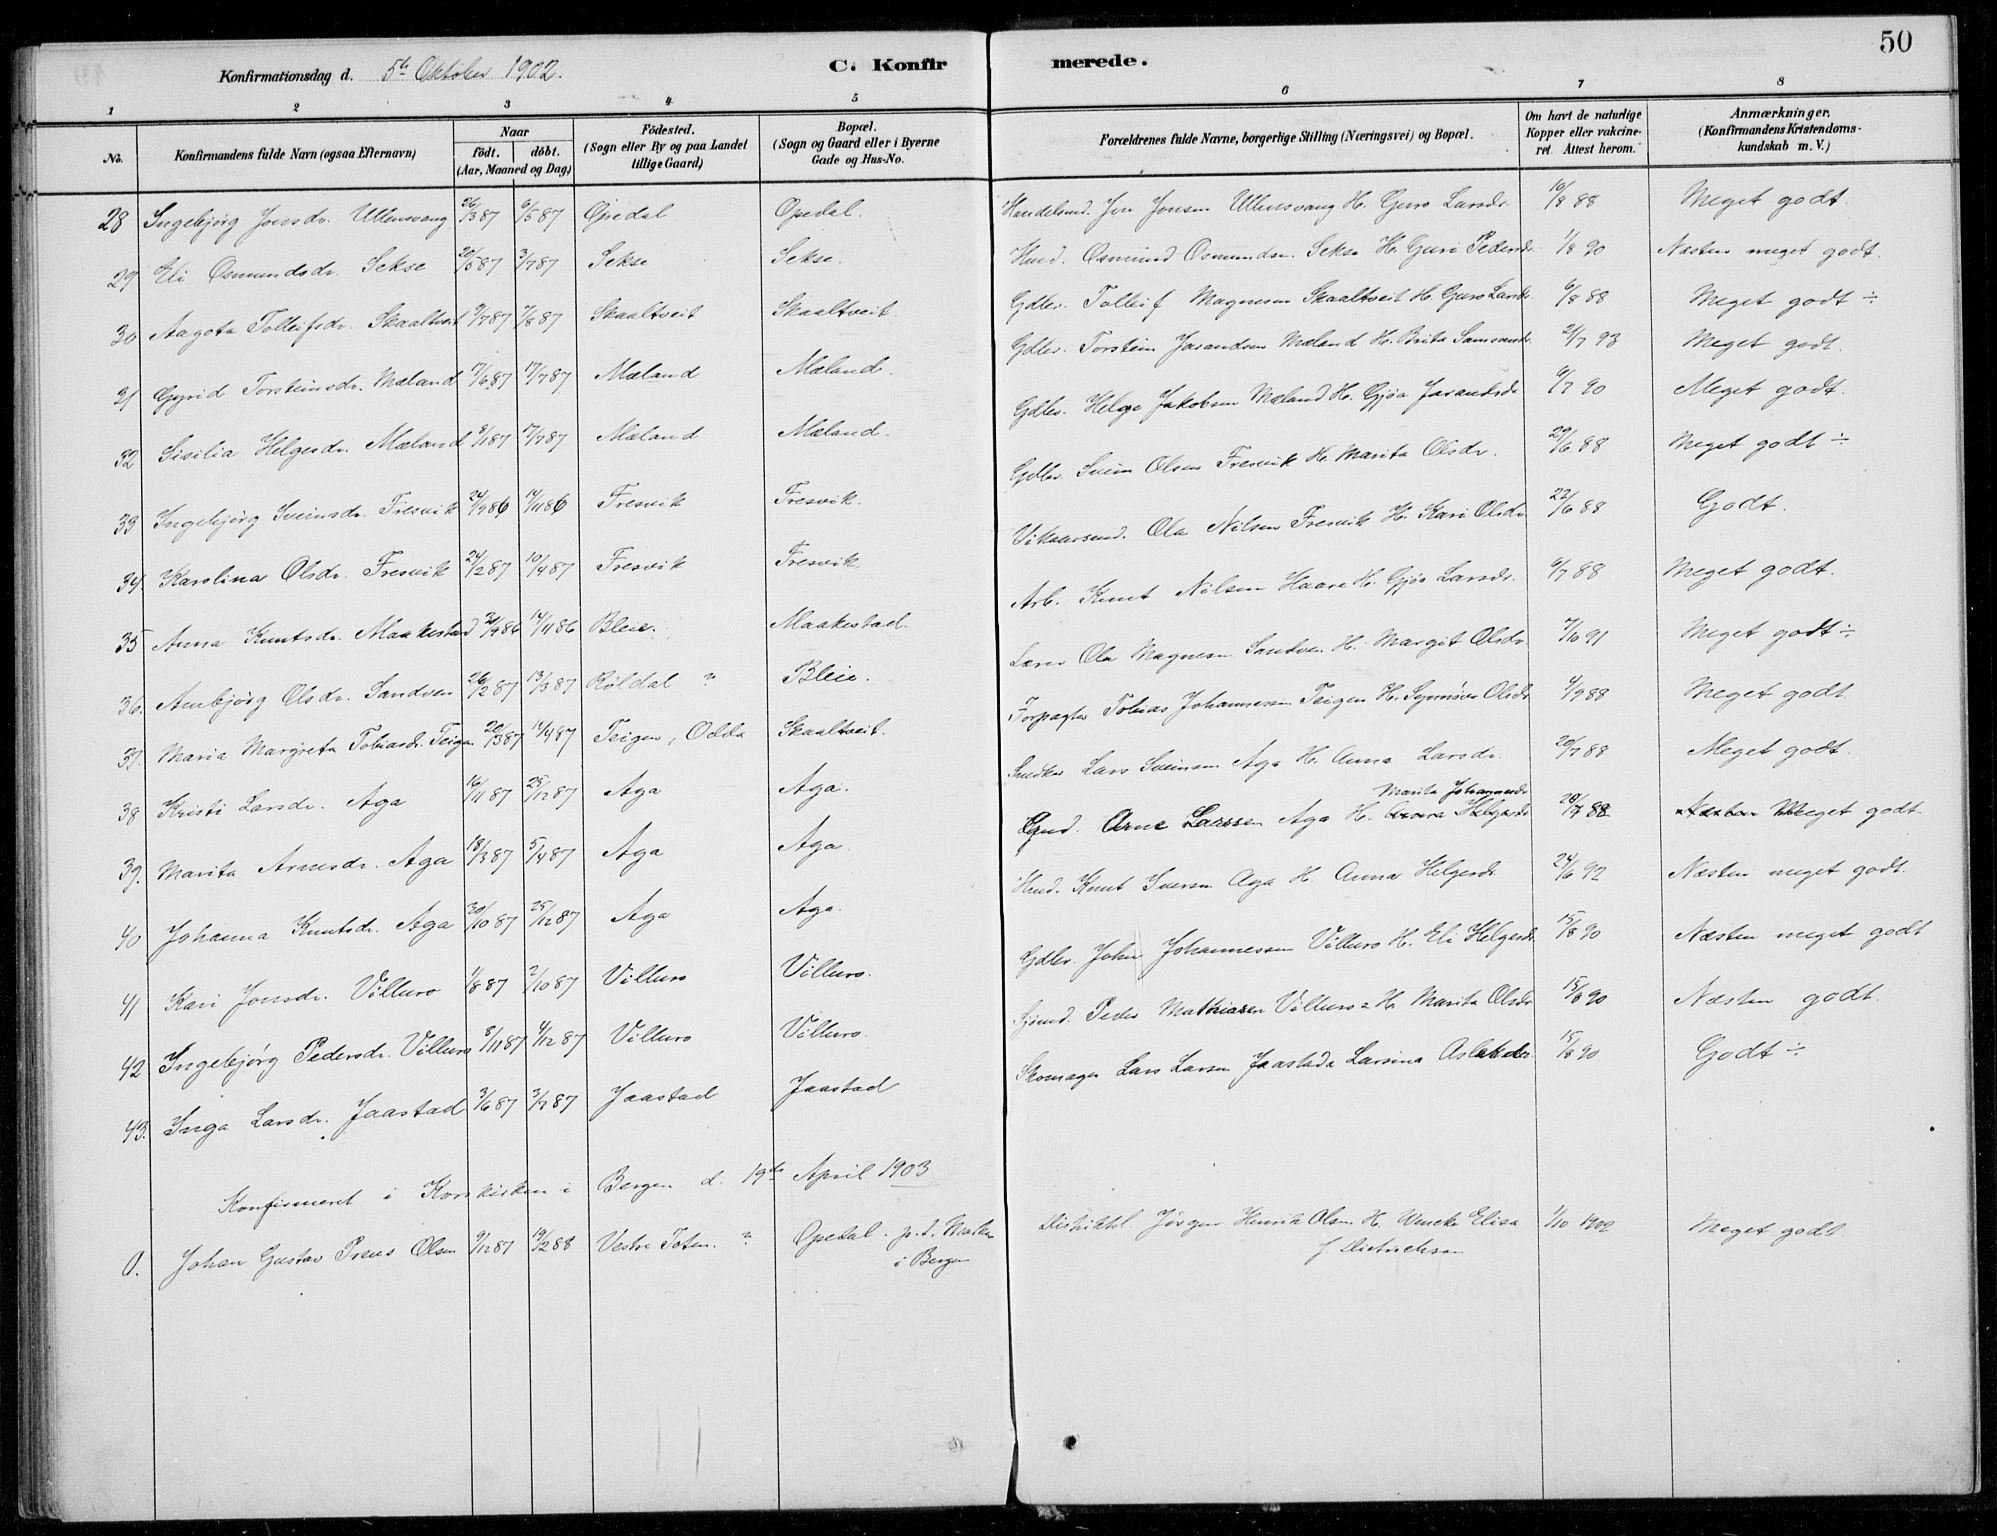 50
Konfirmationsdag d. 5te Oktober 1902. C. Konfir merede.
1 2 3 4 5 6 7 8
No. Konfirmandens fulde Navn (ogsaa Efternavn) Naar födt. döbt. (Aar, Maaned og Dag) Födested. (Sogn eller By og paa Landet tillige Gaard) Bopæl. (Sogn og Gaard eller i Byerne Gade og Hus-No. Forældrenes fulde Navne, borgerlige Stilling (Næringsvei) og Bopæl. Om havt de naturlige Kopper eller vakcineret. Attest herom. Anmærkninger. (Konfirmandens Kristendomskundskab m. V.)
28 Ingebjørg Jonsdr. Ullensvang 26/3 87 6/5 87 Opedal Opedal. Handelsmd. Jon Jonsen Ullensvang H. Guro Larsdr. 10/8 88 Meget godt.
29 Eli Osmundsdr. Sekse 20/5 87 3/7 87 Sekse Sekse. Hmd. Osmund Osmundsen Sekse H. Guri Pedersdr. 1/8 90 Næsten meget godt.
30 Aagota Tolleifsdr. Skaaltveit 9/7 87 7/8 87 Skaaltveit Skaaltveit. Gdbr. Tolleif Magnesen Skaaltveit H. Guro Larsdr. 6/8 88 Meget godt ÷
31 Gyrid Torsteinsdr. Mæland 17/6 87 17/7 87 Mæland Mæland. Gdbr. Torstein Jarandsen Mæland H. Brita Samsonsdr. 21/7 93 Meget godt.
32 Sisilia Helgesdr. Mæland 8/1 87 17/7 87 Mæland Mæland. Gdbr. Helge Jakobsen Mæland H. Gjøa Jarandsdr. 6/7 90 Meget godt.
33 Ingebjørg Sveinsdr. Fresvik 24/9 86 14/11 86 Fresvik Fresvik. Gdbr. Svein Olsen Fresvik H. Marita Olsdr. 29/6 88 Meget godt ÷
34. Karolina Olsdr. Fresvik 24/2 87 10/4 87 Fresvik Fresvik. Vikaarsmd. Ola Nilsen Fresvik H. Kari Olsdr. 22/6 88 Godt.
35 Anna Knutsdr. Maakestad 21/9 86 14/11 86 Bleie. Maakestad. Arb. Knut Nilsen Haare H. Gjøa Larsdr. 6/7 88 Meget godt.
36. Ambjørg Olsdr. Sandven 26/2 87 13/3 87 Röldal " Bleie. Lærer Ola Magnesen Sandven H. Margit Olsdr. 7/10 91 Meget godt ÷
37. Maria Margreta Tobiasdr. Teigen 20/3 87 14/4 87 Teigen, Odda Skaaltveit. Forpagter Tobias Johannessen Teigen H. Synnöva Olsdr. 4/9 88 Meget godt.
38 Kristi Larsdr. Aga 16/11 87 25/12 87 Aga Aga. Snedker Lars Sveinsen Aga H. Anna Larsdr. 20/7 88 Meget godt.
39. Marita Arnesdr. Aga 18/3 87 5/4 87 Aga Aga. Gmd. Arne Larssen Aga H. Marita Johannesdr. 20/7 88 Meget godt.
40 Johanna Knutsdr. Aga 30/10 87 25/12 87 Aga Aga. Hmd. Knut Iversen Aga H. Anna Helgesdr. 24/6 92 Næsten meget godt.
41 Kari Jonsdr. Villuro 1/8 87 2/10 87 Villuro Villuro. Gdbr. John Johannessen Villuro H. Eli Helgesdr. 15/8 90 Næsten meget godt
42 Ingebjørg Pedersdr. Villuro 8/11 87 4/12 87 Villuro Villuro. Sjömd. Peder Mathiasen Villuro H. Marita Olsdr. 15/8 90 Næsten godt.
43. Inga Larsdr. Jaastad 3/6 87 3/7 87 Jaastad Jaastad Skomager Lars Larsen Jaastad Larsina Aslaksdr. 15/8 90 Godt ÷
Konfirmeret i Korskirken i Bergen d. 19de April 1903
0. Johan Gustav Preus Olsen 9/12 87 19/2 88 Vestre Toten. " Opedal. p.t. i Bergen Distriktsl. Jörgen Henrik Olsen H. Wencke Elisa f. Dietrichson 1/10 1902 Meget godt.